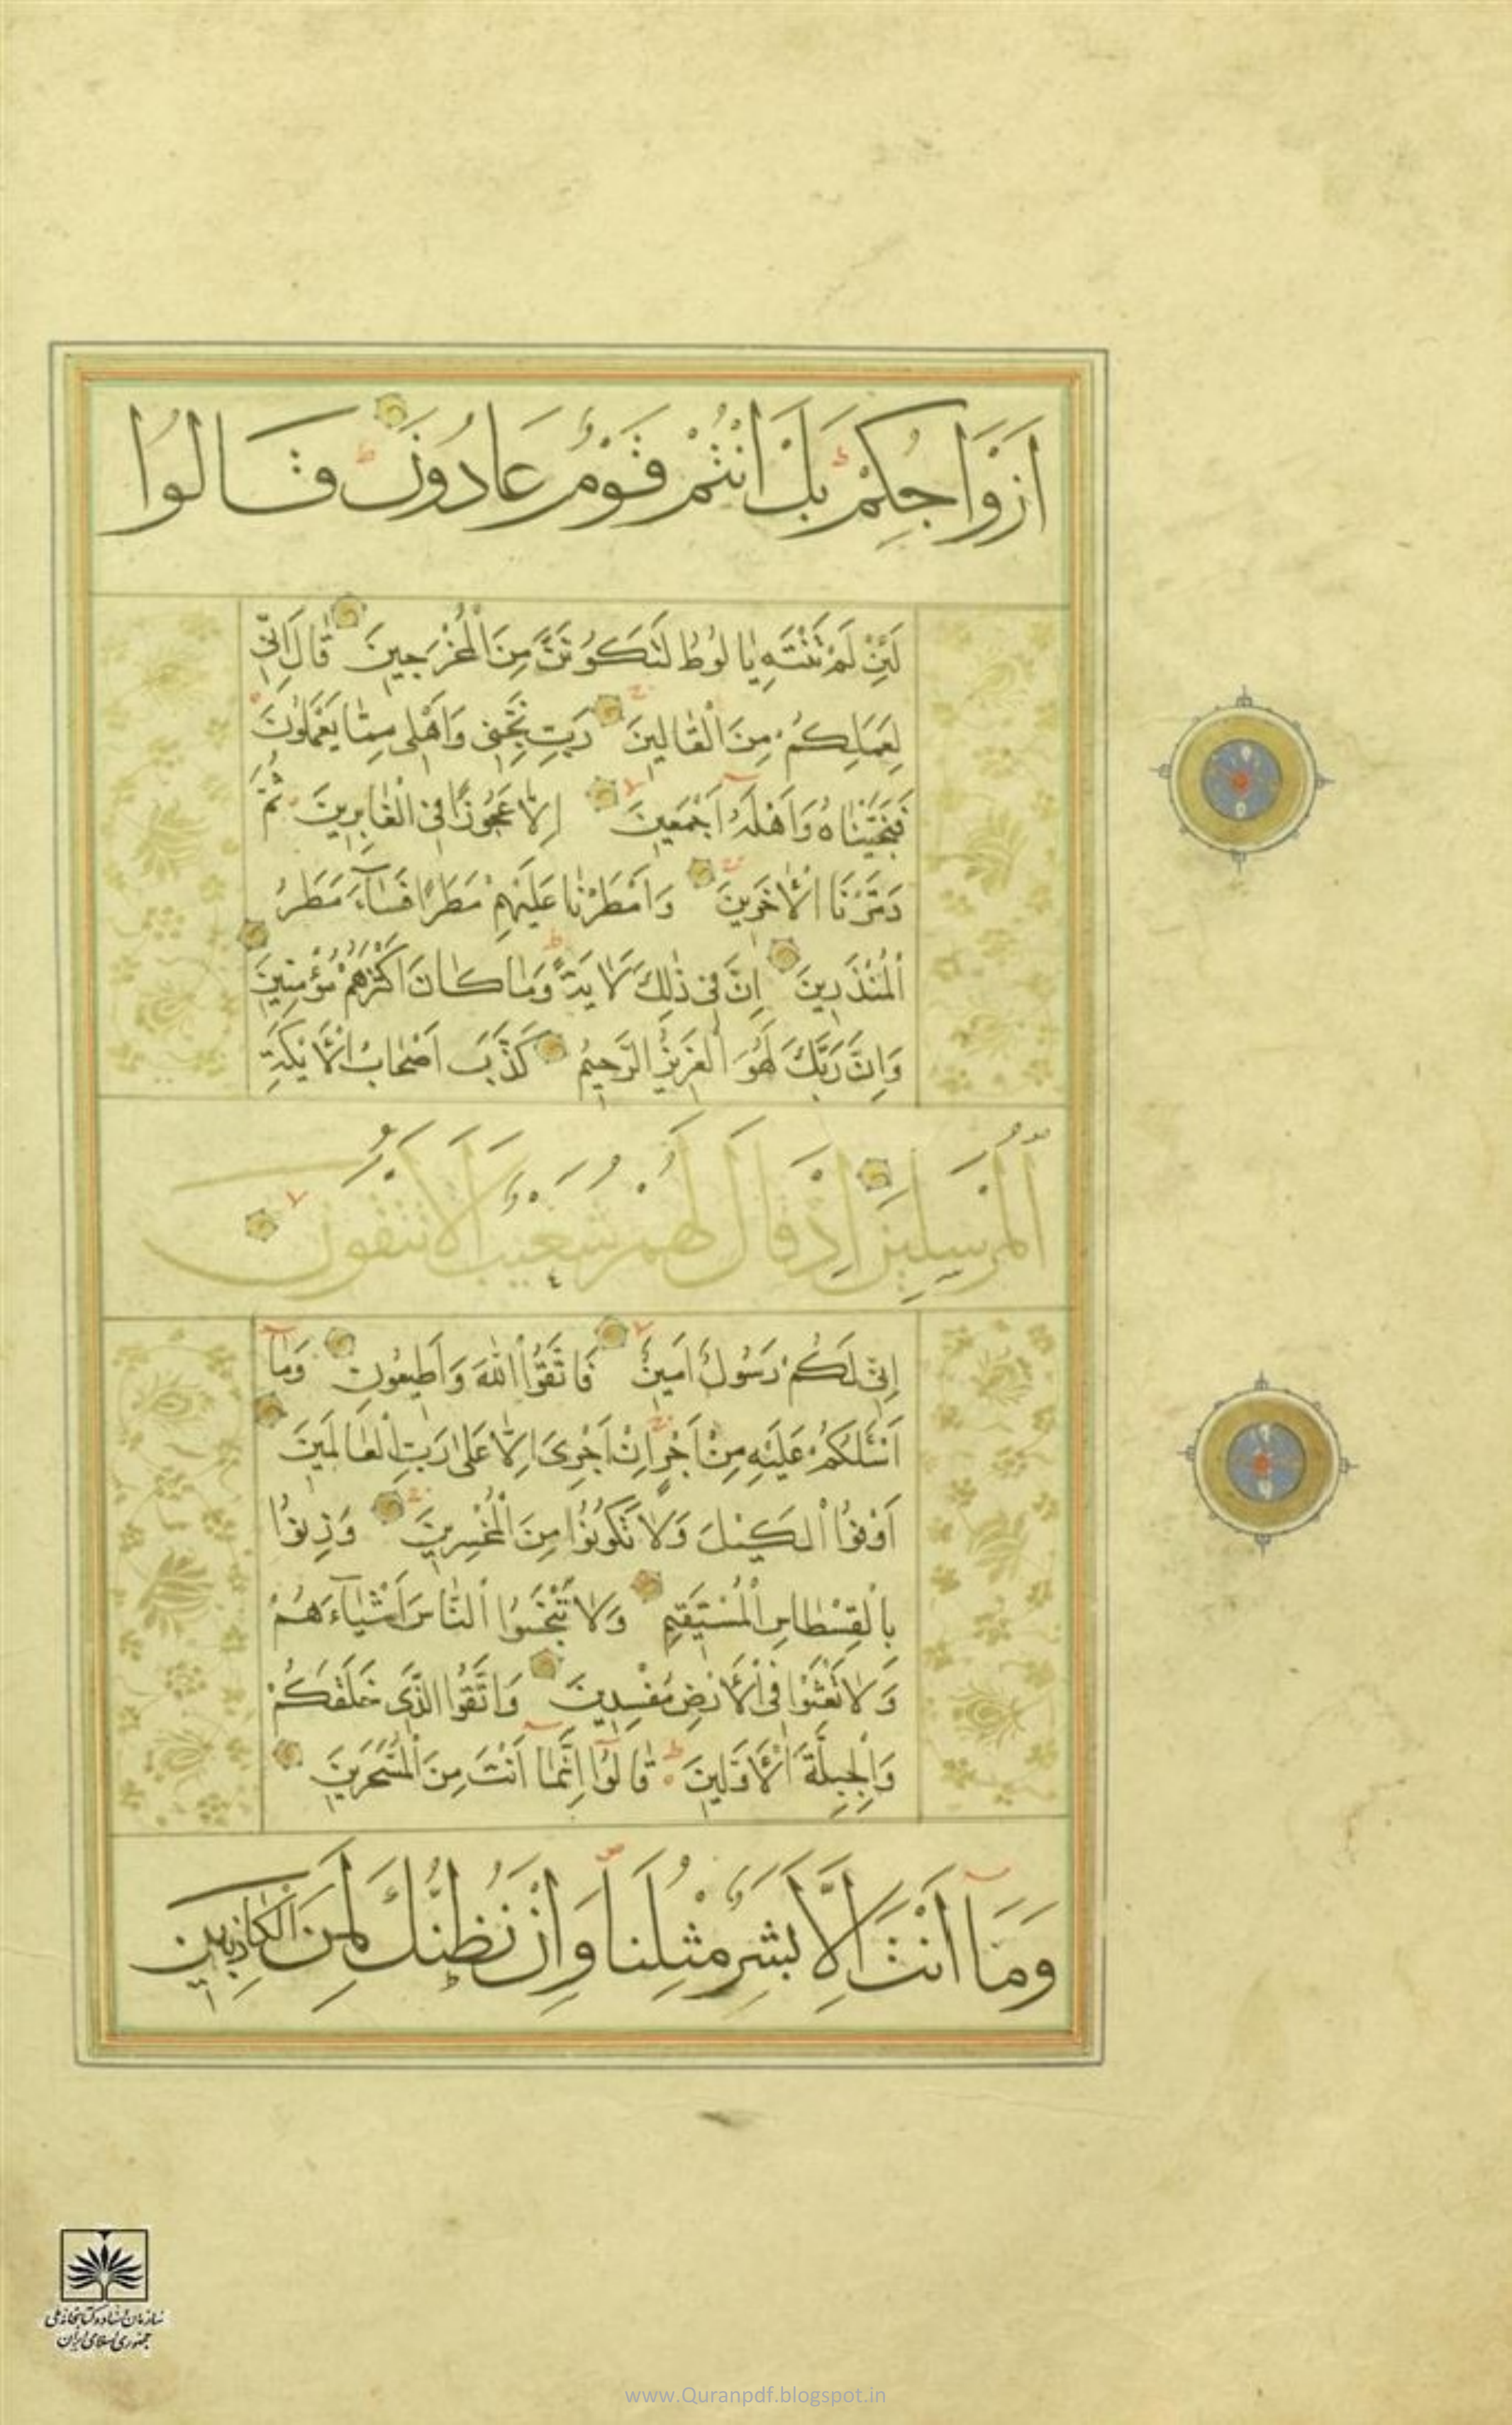 اَزْوَاجِكُمْ بَلْ اَنْتُمْ قَوْمٌ عَادُونَ قَالُوا
لَئِنْ لَمْ تَنْتَهِ يَا لُوطُ لَتَكُونَنَّ مِنَ الْمُخْرَجِينَ قَالَ اِنِّي
لِعَمَلِكُمْ مِنَ الْقَالِينَ رَبِّ نَجِّنِي وَاَهْلِي مِمَّا يَعْمَلُونَ
فَنَجَّيْنَاهُ وَاَهْلَهُ اَجْمَعِينَ اِلَّا عَجُوزًا فِي الْغَابِرِينَ ثُمَّ
دَمَّرْنَا الْاٰخَرِينَ وَاَمْطَرْنَا عَلَيْهِمْ مَطَرًا فَسَآءَ مَطَرُ
الْمُنْذَرِينَ اِنَّ فِي ذٰلِكَ لَاٰيَةً وَمَا كَانَ اَكْثَرُهُمْ مُؤْمِنِينَ
وَاِنَّ رَبَّكَ لَهُوَ الْعَزِيزُ الرَّحِيمُ كَذَّبَ اَصْحَابُ الْاَيْكَةِ
الْمُرْسَلِينَ اِذْ قَالَ لَهُمْ شُعَيْبٌ اَلَا تَتَّقُونَ
اِنِّي لَكُمْ رَسُولٌ اَمِينٌ فَاتَّقُوا اللّٰهَ وَاَطِيعُونِ وَمَآ
اَسْئَلُكُمْ عَلَيْهِ مِنْ اَجْرٍ اِنْ اَجْرِيَ اِلَّا عَلٰى رَبِّ الْعَالَمِينَ
اَوْفُوا الْكَيْلَ وَلَا تَكُونُوا مِنَ الْمُخْسِرِينَ وَزِنُوا
بِالْقِسْطَاسِ الْمُسْتَقِيمِ وَلَا تَبْخَسُوا النَّاسَ اَشْيَآءَهُمْ
وَلَا تَعْثَوْا فِي الْاَرْضِ مُفْسِدِينَ وَاتَّقُوا الَّذِي خَلَقَكُمْ
وَالْجِبِلَّةَ الْاَوَّلِينَ قَالُوٓا اِنَّمَآ اَنْتَ مِنَ الْمُسَحَّرِينَ
وَمَآ اَنْتَ اِلَّا بَشَرٌ مِثْلُنَا وَاِنْ نَظُنُّكَ لَمِنَ الْكَاذِبِينَ
سازمان اسناد و کتابخانه ملی
جمهوری اسلامی ایران
www.Quranpdf.blogspot.in